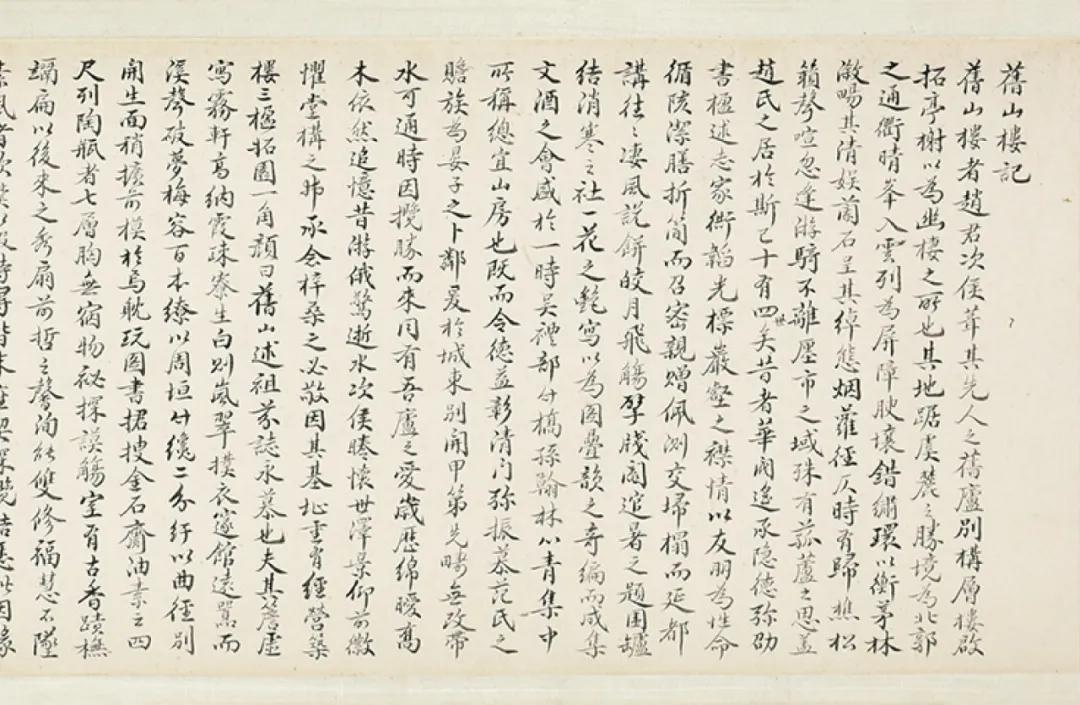 舊山樓記
舊山樓者趙君次侯葺其先人之舊廬別構層樓啟
拓亭榭以為幽棲之所也其地踞虞麓之勝境為北郭
之通衢晴峯入雲列為屏障腴壤錯繡環以衡茅林
澂暘其清娱蘭石呈其綽態烟蘿徑仄時有歸樵松
籟聲喧忽逢游騎不離壓市之域殊有菰蘆之思蓋
趙氏之居於斯已十有四世矣昔者華閥遥承隐德弥劭
書楹述志家衖韜光標嚴壑之襟情以友朋為性命
循陔潔膳折簡而召密親贈佩測交埽榻而延都
講往往凄風説餅皎月飛觴擘牋闳谊暑之題圍罏
結消寒之社一花之甤寫以為圖疊韻之奇編而成集
文酒之會盛於一時吴禮部竹橋孫翰林心青集中
所稱總宜山房也既而令德益彰清門弥振慕范氏之
贍族為晏子之卜鄰爰於城東別開甲第先疇無改帶
水可通時因攬勝而來同有吾廬之愛歲歷綿曖喬
木依然追憶昔游俄驚逝水次侯睠懷世澤景仰前徽
懼堂構之弗承念梓桑之必敬因其基址重肎經營築
樓三楹拓園一角顏曰舊山述祖芬誌永慕也夫其簷虚
寫霧軒高納霞疎寮生白則嵐翠撲衣邃館遠罤而
溪聲破夢梅容百本繚以周垣竹纔二分紆以曲徑別
開生面稍擴前模於焉耽玩圖書捃搜金石齋油素之四
尺列陶瓶者七層胸無宿物祕探謨觴室有古香蹟橅
竵扁以後来之秀扇前哲之馨洵能雙修福慧不墜